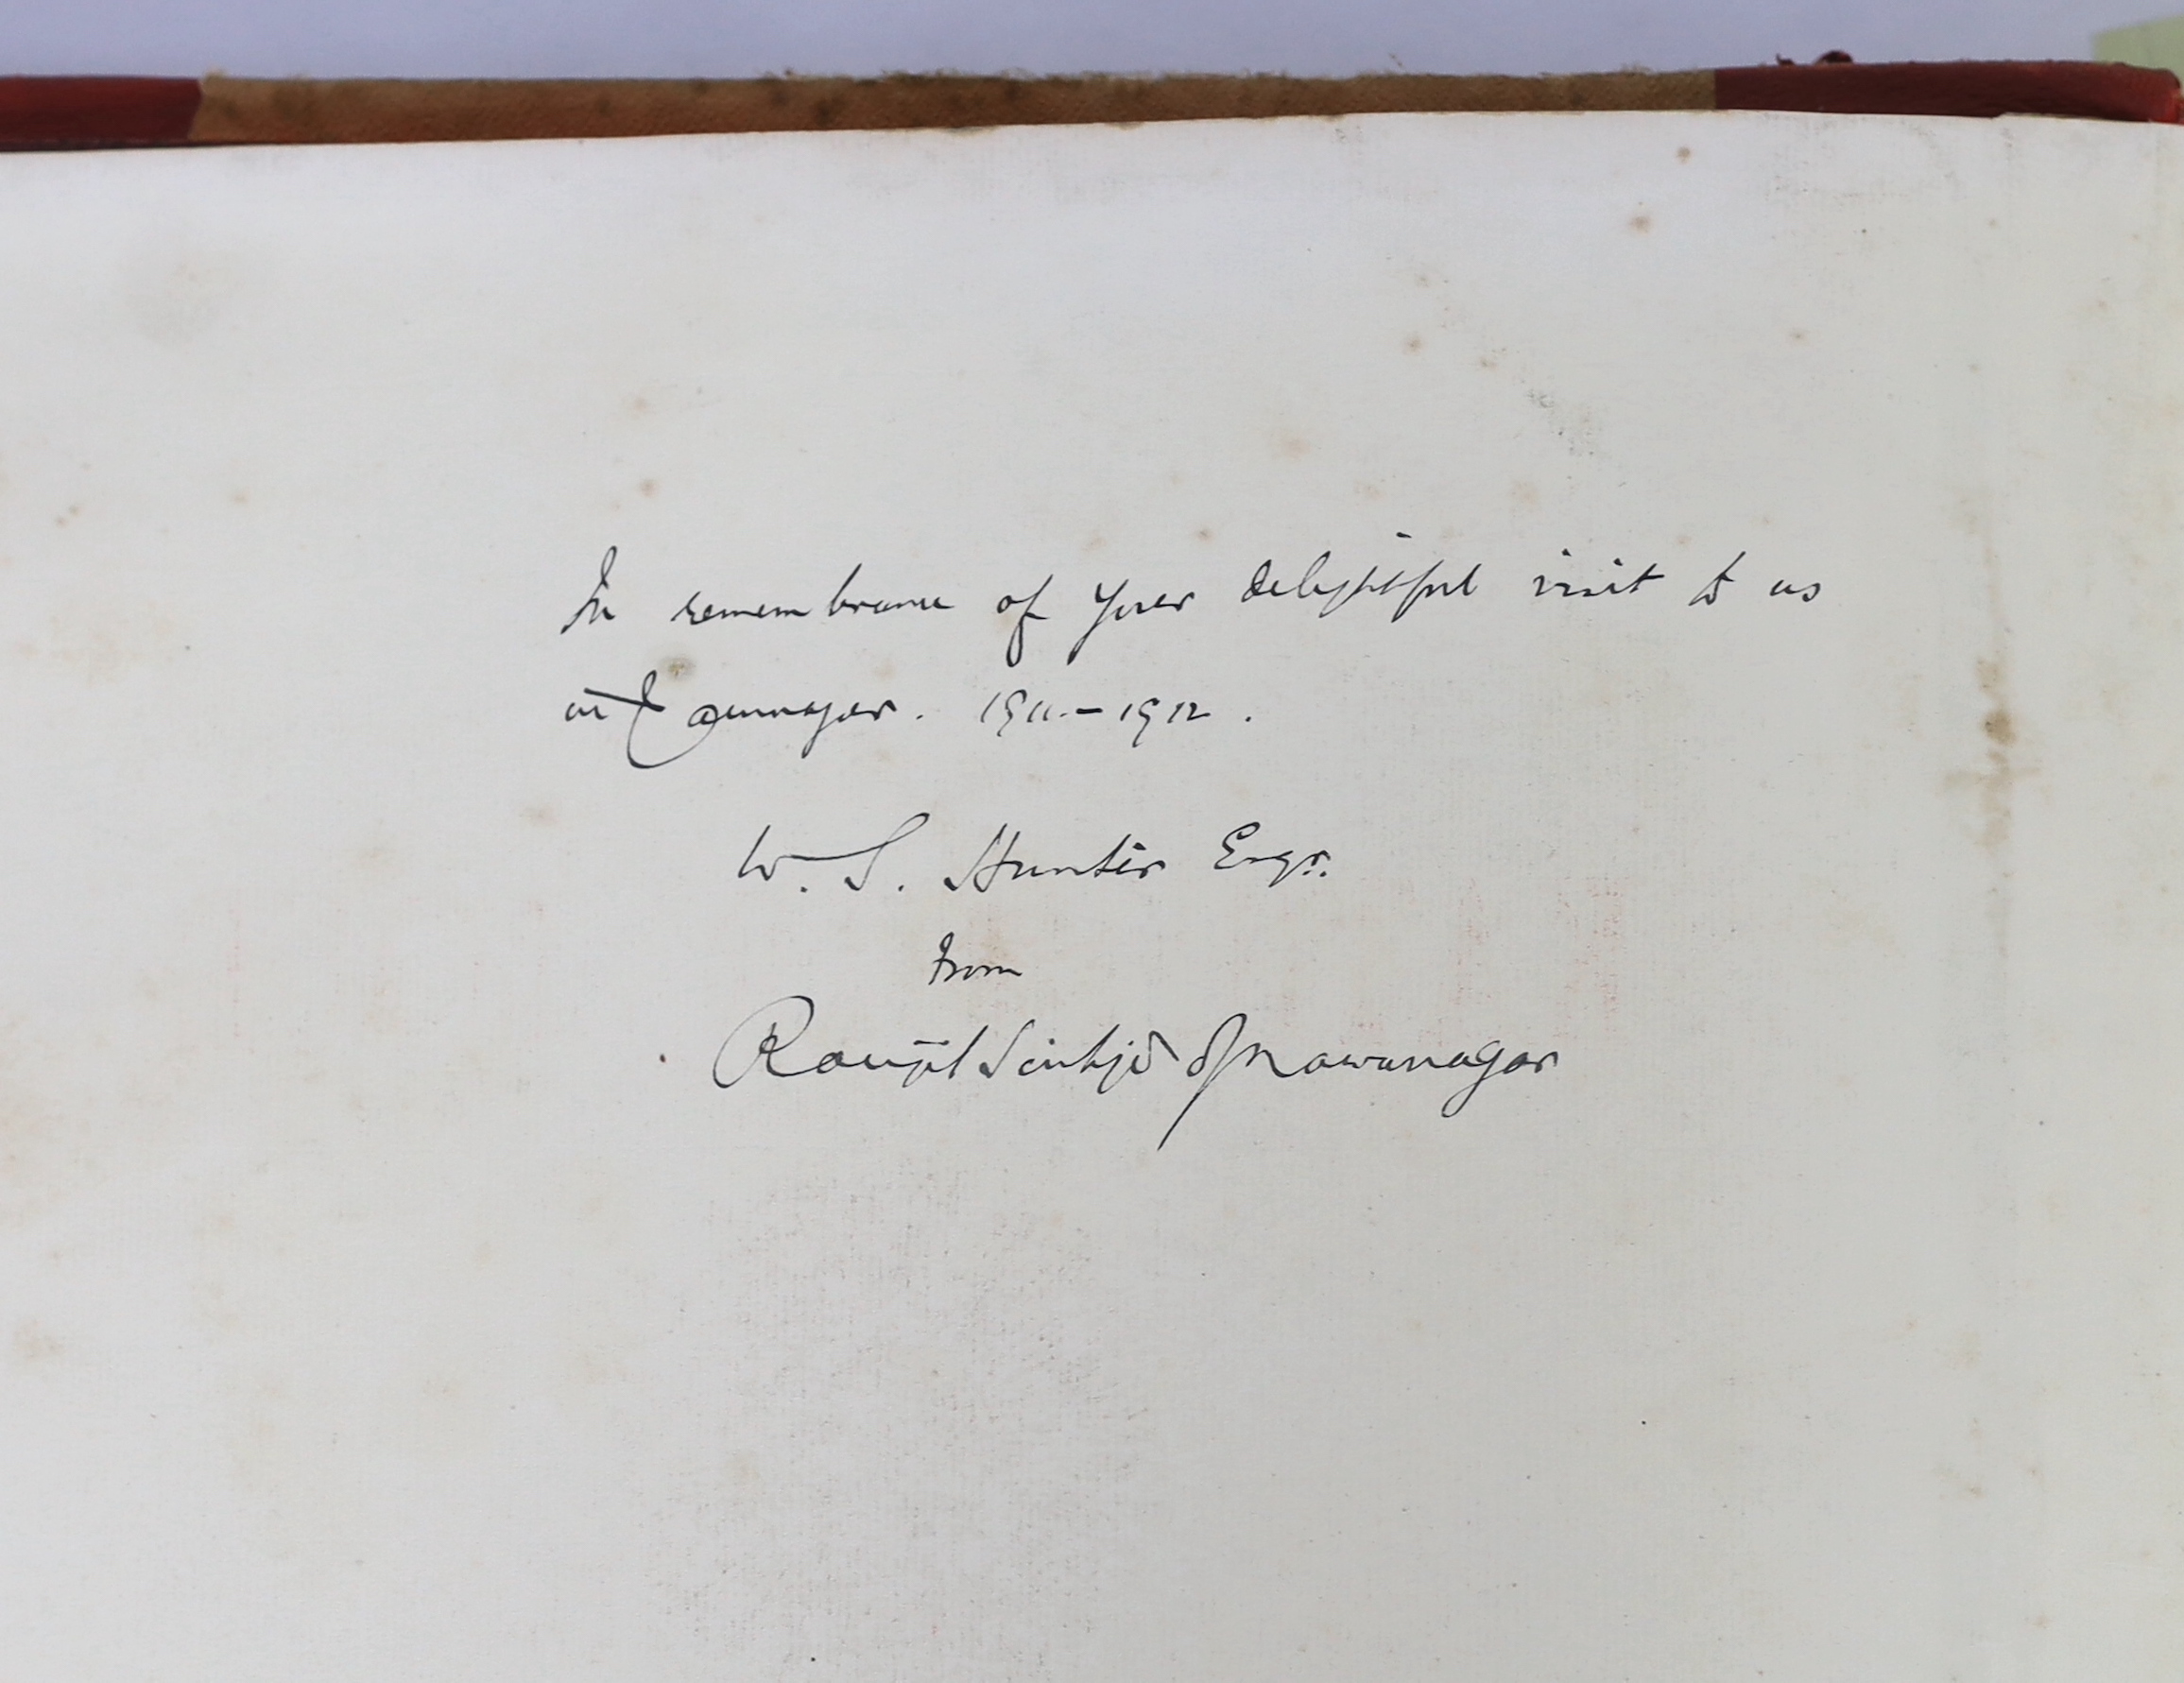 In remembrance of your delightful visit to us
at Jamnagar. 1911.-1912.
W. S. Hunter Esqr.
from
Ranjitsinhji of Nawanagar